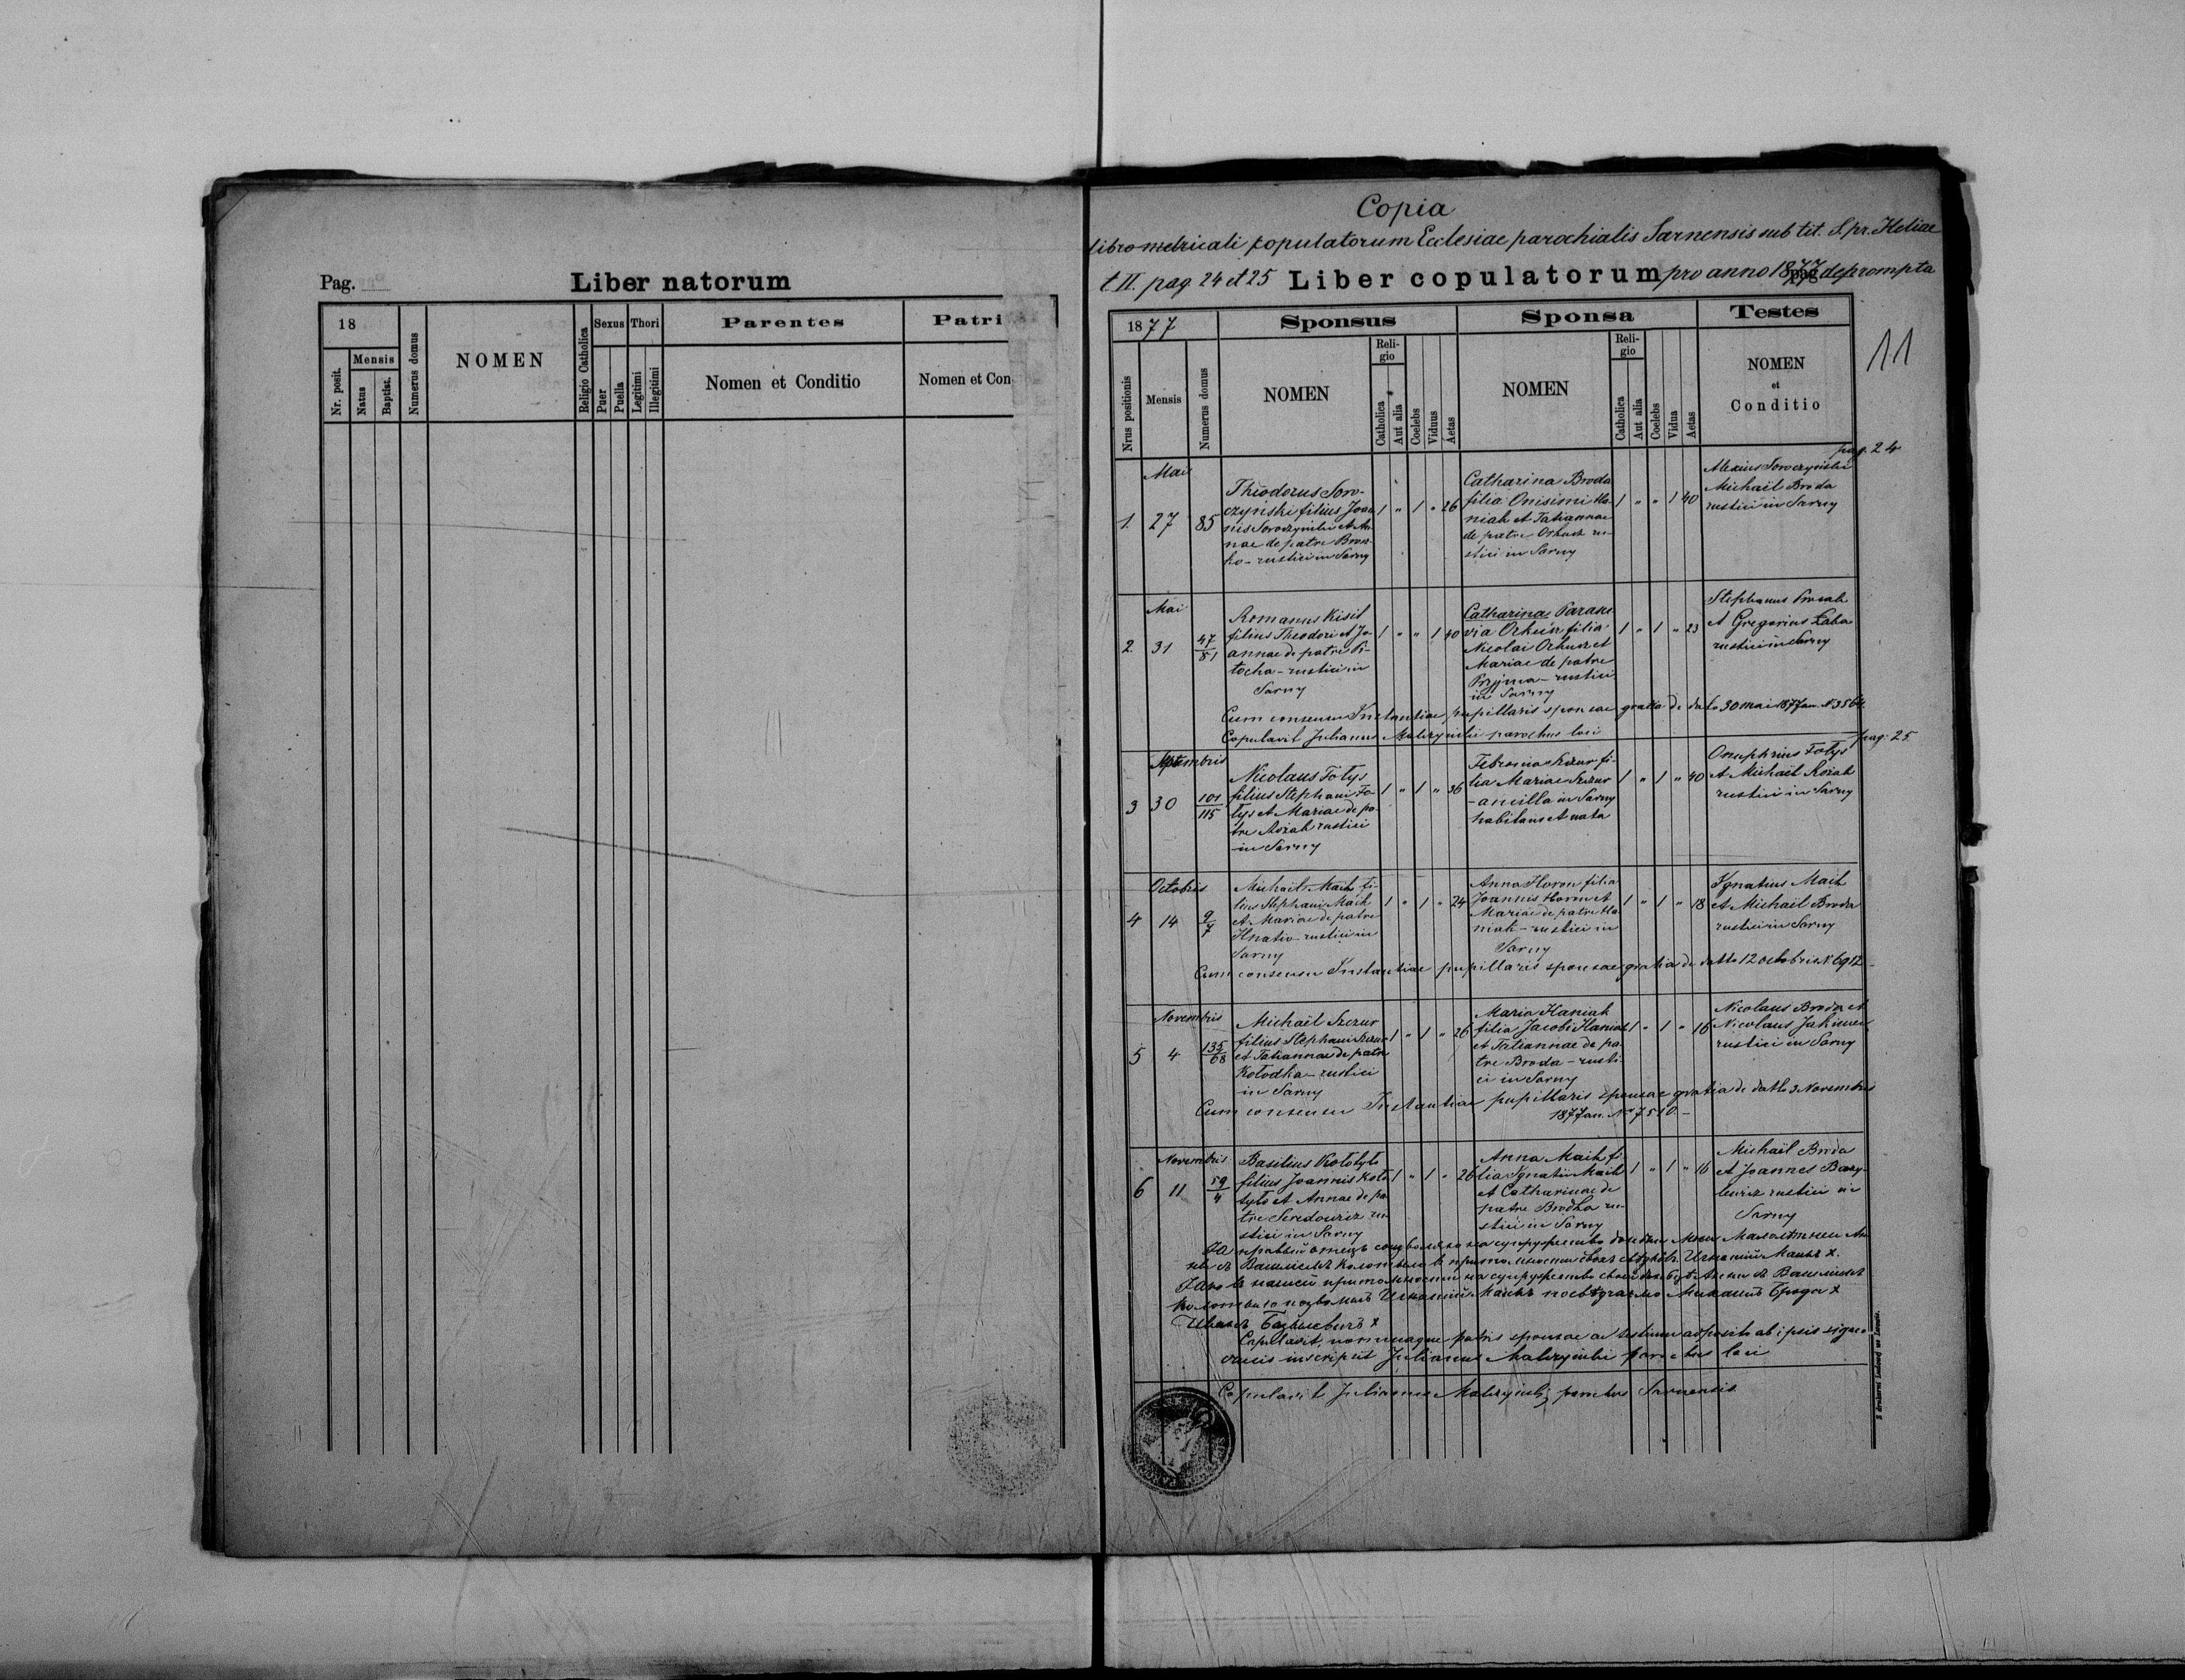 Pag.
Liber natorum
18
Nr. posit.
Mensis
Natus
Baptist.
Numerus domus
NOMEN
Religio Catholica
Sexus
Puer
Puella
Thori
Legitimi
Illegitimi
Parentes
Nomen et Conditio
Patri
Nomen et Con
Copia
libro metricali copulatorum Ecclesiae parochialis Sarnensis sub tit. S. pr. Heliae
t. II. pag. 24 et 25 Liber copulatorum pro anno 1877 deprompta
11
1877
Nrus positionis
Mensis
Numerus domus
Sponsus
NOMEN
Religio
Catholica
Aut alia
Coelebs
Viduus
Aetas
Sponsa
NOMEN
Religio
Catholica
Aut alia
Coelebs
Vidua
Aetas
Testes
NOMEN
et
Conditio
pag. 24
Mai
1. 27 85
Theodorus Soro-
czynski filius Joan
nis Soroczynski et An
nae de patre Bron
ko - rustici in Sarny
1 " 1 " 26
Catharina Broda
filia Onisimi Ha-
niak et Tatiannae
de patre ru-
stici in Sarny
1 " " 1 40
Alexius Soroczyński
Michail Broda
rustici in Sarny
Mai
2. 31 47/81
Romanus Kisil
filius Theodori et Jo-
annae de patre Pi-
tocha - rustici in
Sarny
1 " " 1 40
Catharinae Paraske
via filia
Nicolai et
Mariae de patre
Pryjma - rustici
in Sarny
1 " 1 " 23
Stephanus
et Gregorius Łaba
rustici in Sarny
Cum consensu Instantiae pupillaris sponsae gratia de dato 30 mai 1877 an. N 3564.
Copulavit Julianus parochus loci
pag. 25
Septembris
3 30 101/115
Nicolaus Fotys
filius Stephani Fo-
tys et Mariae de pa-
tre rustici
in Sarny
1 " 1 " 36
Febronia Szczur fi-
lia Mariae Szczur
- ancilla in Sarny
habitans et nata
1 " 1 " 40
Onuphrius Fotys
et Michaël
rustici in Sarny
Octobris
4 14 9/7
Michail Maik fi-
lius Stephani Maik
et Mariae de patre
Hnatio - rustici in
Sarny
1 " 1 " 24
Anna Horon filia
Joannis Horon et
Mariae de patre Ha
niak - rustici in
Sarny
1 " 1 " 18
Ignatius Maik
et Michail Broda
rustici in Sarny
Cum consensu Instantiae pupillaris sponsae gratia de datto 12 octobris N 6912 -
Novembris
5 4 135/68
Michaël Szczur
filius Stephani Szczur
et Tatiannae de patre
Kołodka - rustici
in Sarny
1 " 1 " 26
Maria Haniak
filia Jacobi Haniak
et Tatiannae de pa-
tre Broda - rusti-
ci in Sarny
1 " 1 " 16
Nicolaus Broda et
Nicolaus
rustici in Sarny
Cum consensu Instantiae pupillaris sponsae gratia de datto 3 Novembris
1877 an. N 7510. -
Novembris
6 11 59/4
Basilius Kołotyło
filius Joannis Koło
tyło et Annae de pa
tre ru
stici in Sarny
1 " 1 " 26
Anna Maik fi-
lia Ignatii Maik
et Catharinae de
patre Brodka ru-
stici in Sarny
1 " 1 " 16
Michaël Broda
et Joannes Bazy-
lewicz rustici in
Sarny
Copulavit, nominaque patris sponsae ac testium apposito ab ipsis signo
crucis inscripsit Julianus parochus loci
Copulavit Julianus parochus Sarnensis